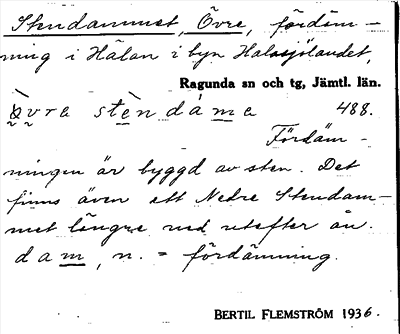 Stendammet, Övre, fördäm-
ning i Hålån i byn Halasjölandet,
Ragunda sn och tg, Jämtl. län.
ö̀vra stèndáma 488.
Fördäm-
ningen är byggd av sten. Det
finns även ett Nedre Stendam-
met längre ned utefter ån.
dam, n. = fördämning.
BERTIL FLEMSTRÖM 1936.